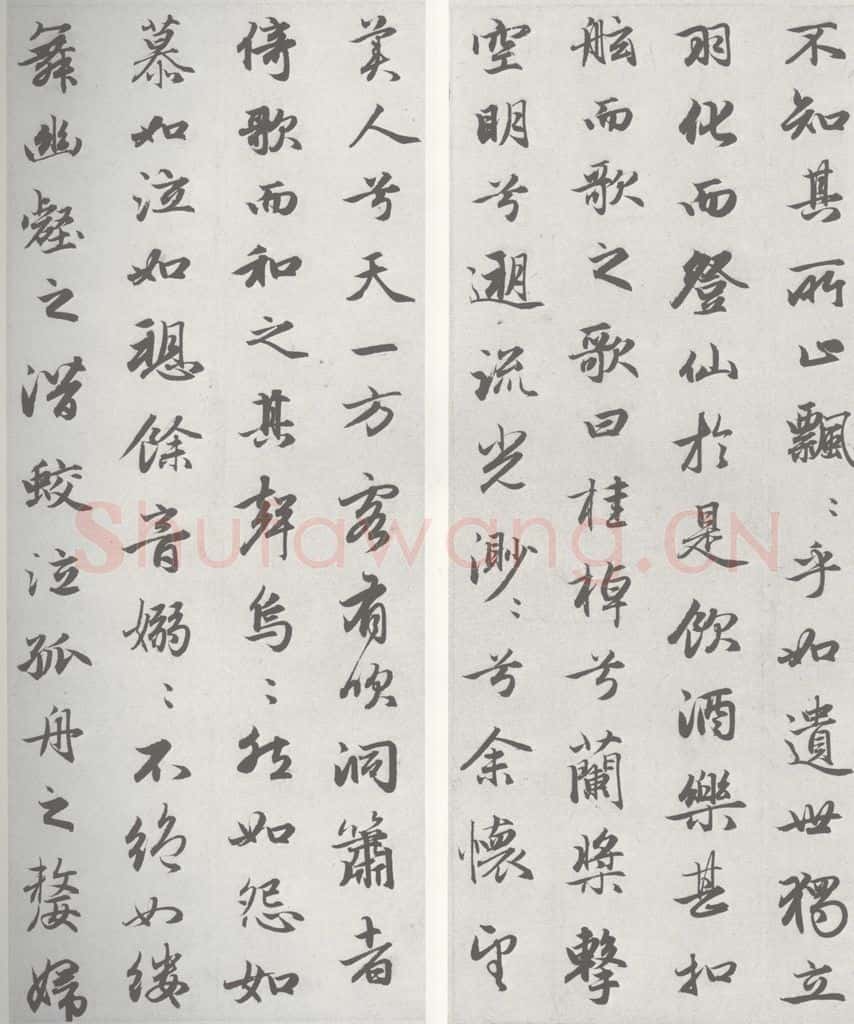 不知其所止飄〻乎如遺世獨立
羽化而登仙於是飲酒樂甚扣
舷而歌之歌曰桂棹兮蘭槳擊
空明兮遡流光渺〻兮余懷望
美人兮天一方客有吹洞簫者
倚歌而和之其聲烏〻然如怨如
慕如泣如愬餘音嫋〻不絕如縷
舞幽壑之潛蛟泣孤舟之嫠婦
Shufawang.CN